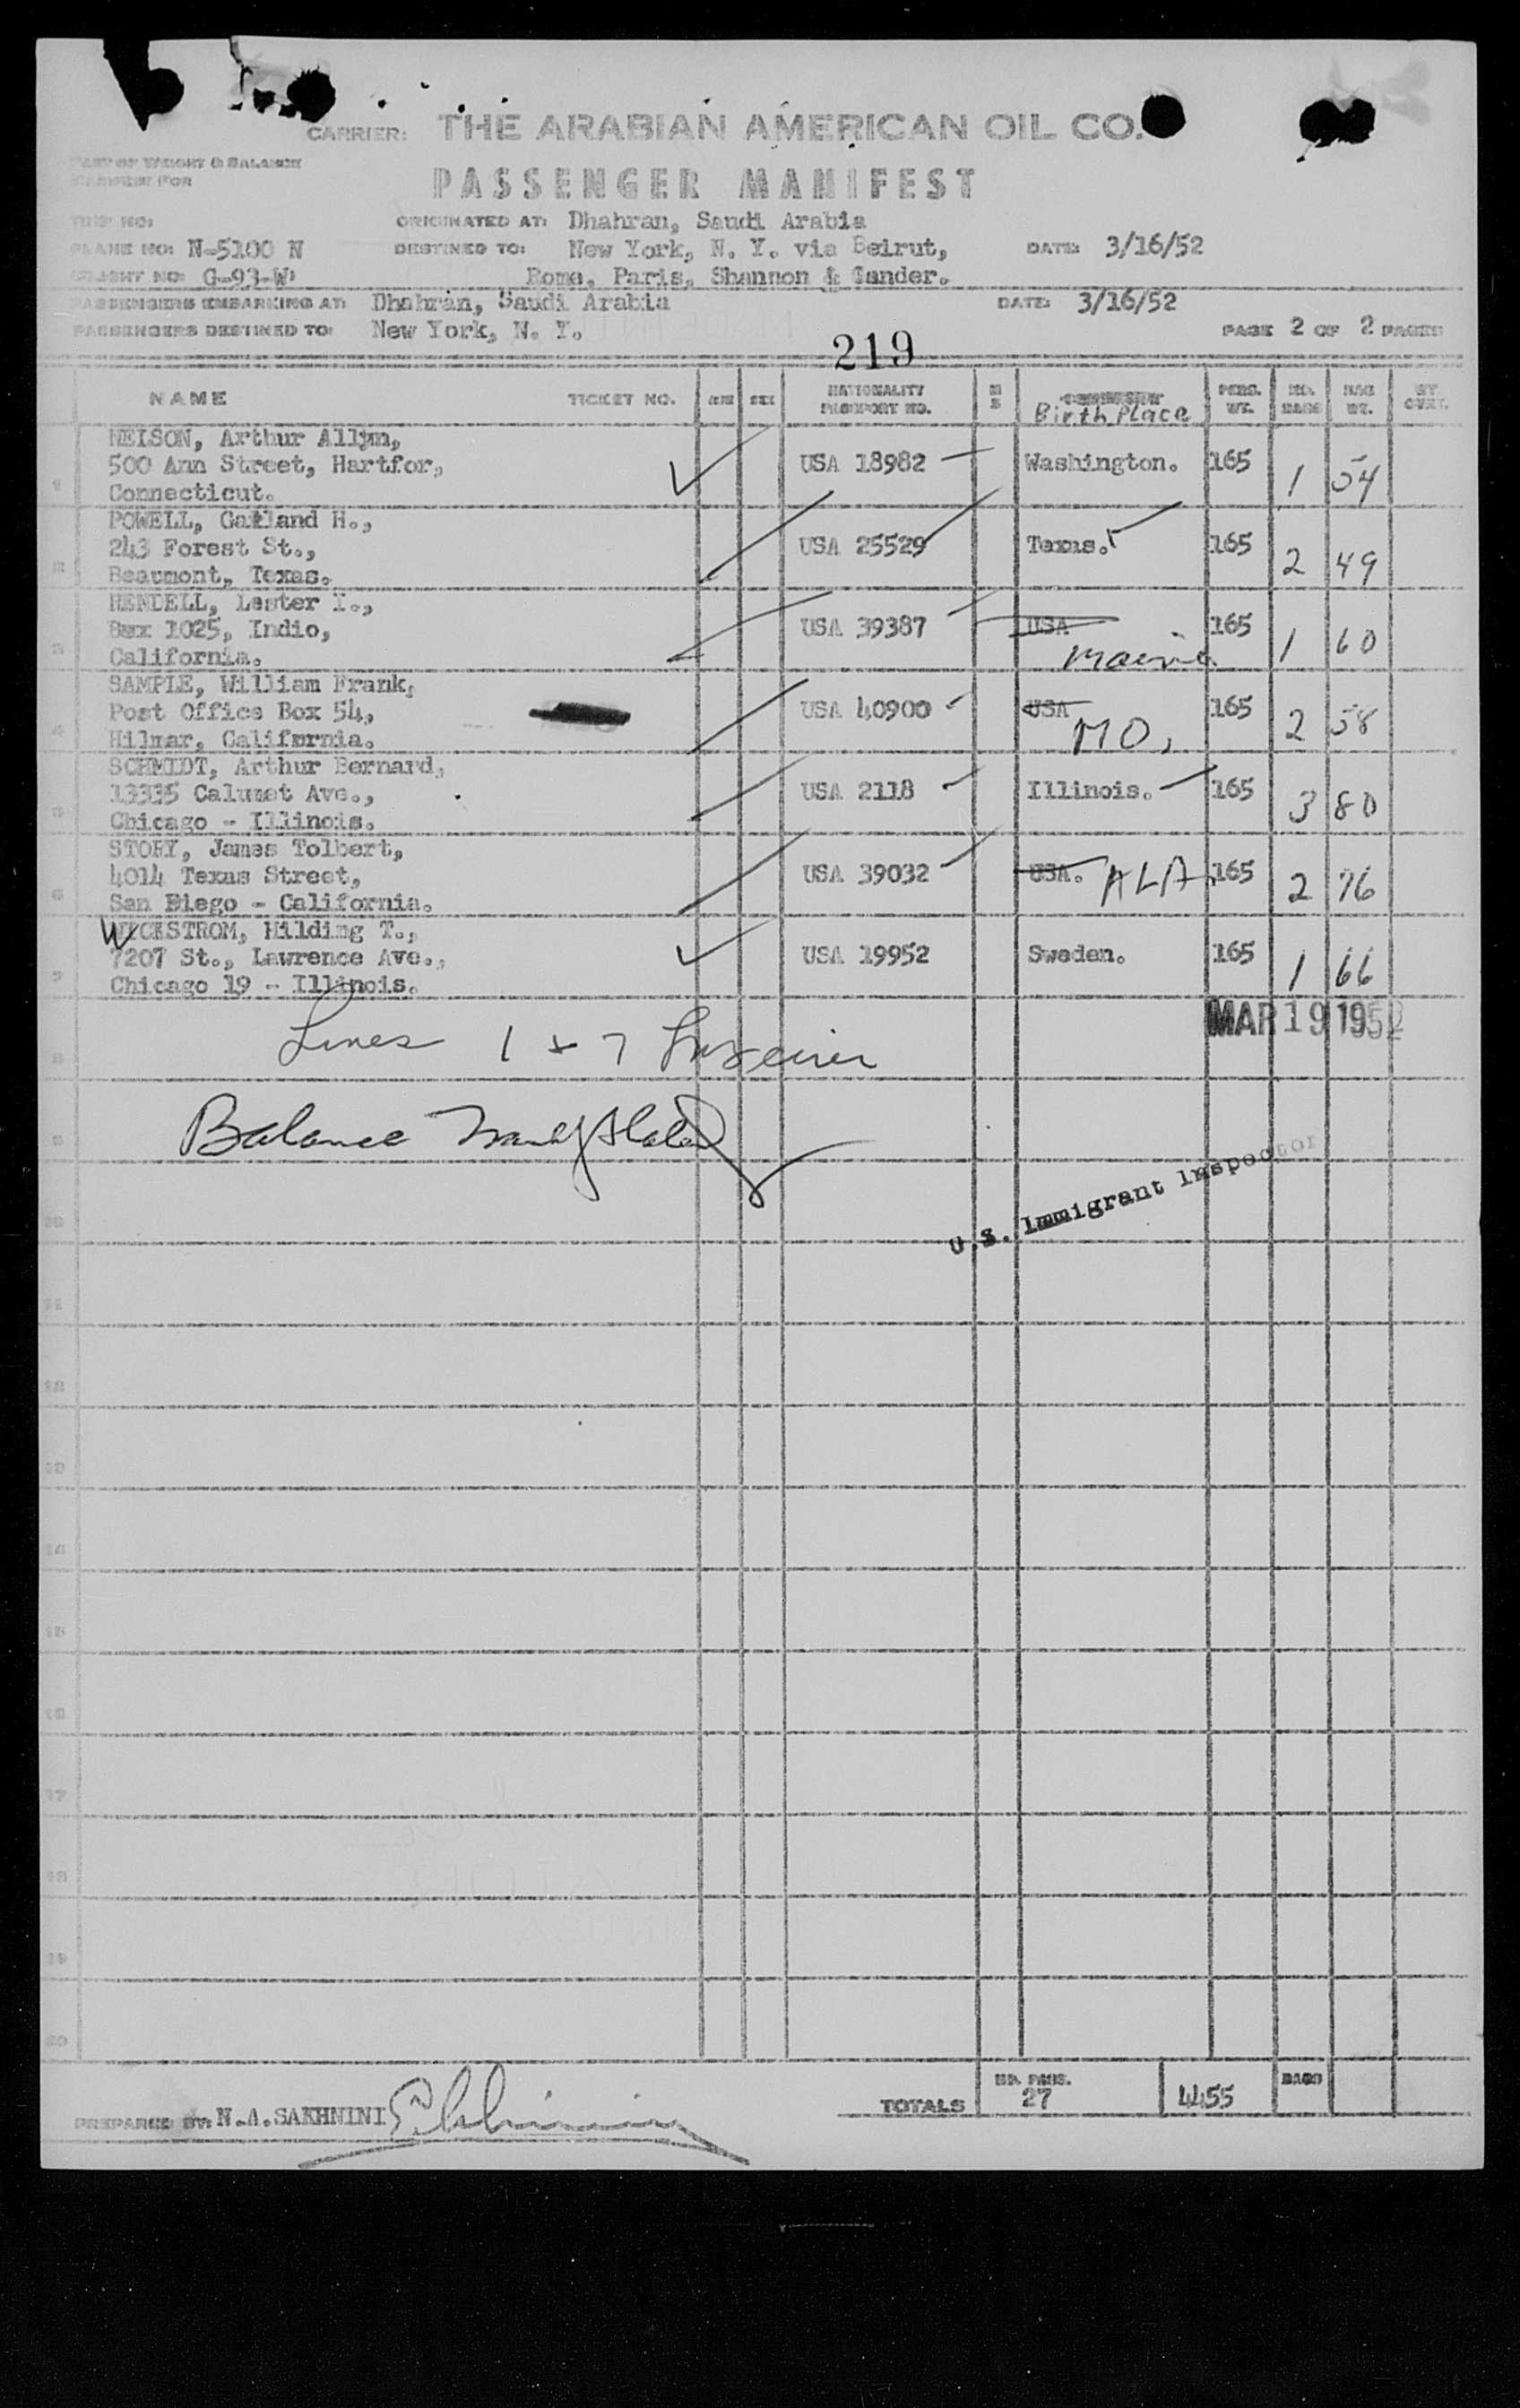 CARRIER: THE ARABIAN AMERICAN OIL CO.
PART OF WEIGHT & BALANCE
MANIFEST FOR
PASSENGER MANIFEST
TRIP NO:
ORIGINATED AT: Dhahran, Saudi Arabia
PLANE NO: N-5100 N
DESTINED TO: New York, N. Y. via Beirut,
DATE: 3/16/52
FLIGHT NO: G-93-W
Rome, Paris, Shannon & Gander.
PASSENGERS EMBARKING AT: Dhahran, Saudi Arabia
DATE: 3/16/52
PASSENGERS DESTINED TO: New York, N. Y.
PAGE 2 OF 2 PAGES
219
NAME TICKET NO. AGE SEX NATIONALITY PASSPORT NO. M S Birth Place PERS. WT. NO. BAGS BAG WT.
1 NEISON, Arthur Allyn,
500 Ann Street, Hartfor, USA 18982 Washington. 165 1 54
Connecticut.
2 POWELL, Garland H.,
243 Forest St., USA 25529 Texas. 165 2 49
Beaumont, Texas.
3 RENDELL, Lester I.,
Box 1025, Indio, USA 39387 USA Maine 165 1 60
California.
4 SAMPLE, William Frank,
Post Office Box 54, USA 40900 USA MO, 165 2 58
Hilmar, California.
5 SCHMIDT, Arthur Bernard,
13335 Calumet Ave., USA 2118 Illinois. 165 3 80
Chicago - Illinois.
6 STORY, James Tolbert,
4014 Texas Street, USA 39032 USA. ALA. 165 2 76
San Diego - California.
7 WYCKSTROM, Hilding T.,
7207 St., Lawrence Ave., USA 19952 Sweden. 165 1 66
Chicago 19 - Illinois.
MAR 19 1952
8 Lines 1 + 7
9 Balance
U.S. Immigrant Inspector
10
11
12
13
14
15
16
17
18
19
20
PREPARED BY: N.A.SAKHNINI
TOTALS NO. PASS. 27 4455 BAGS